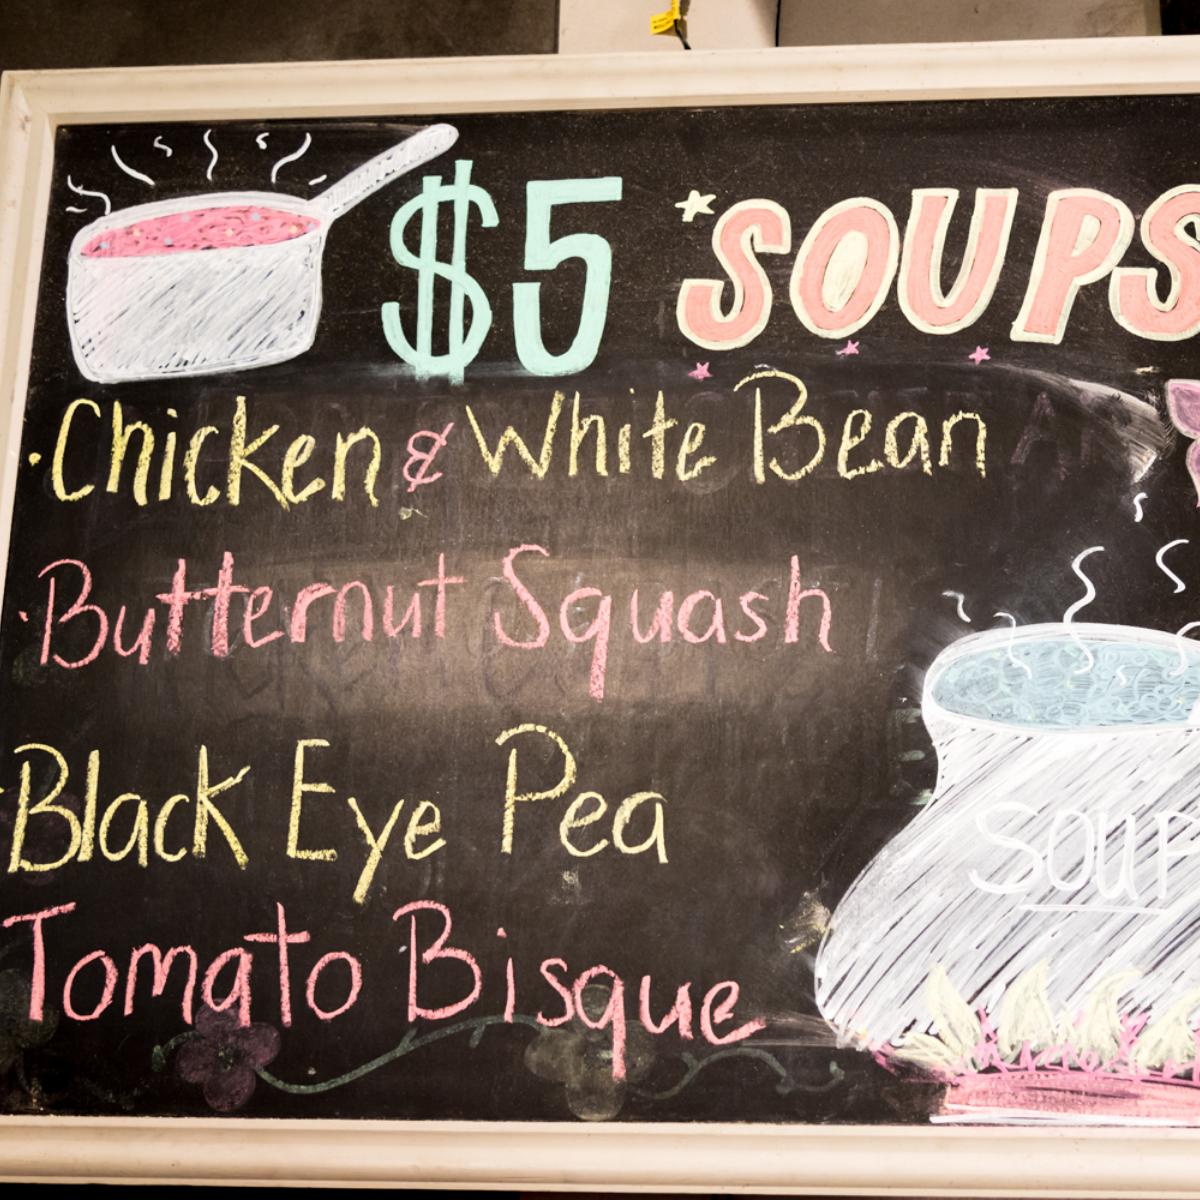 $5 *SOUPS
·Chicken & White Bean
·Butternut Squash
·Black Eye Pea
Tomato Bisque
SOUP